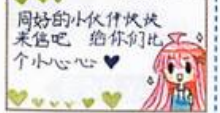 同好的小伙伴快快
来信吧 给你们比
个小心心